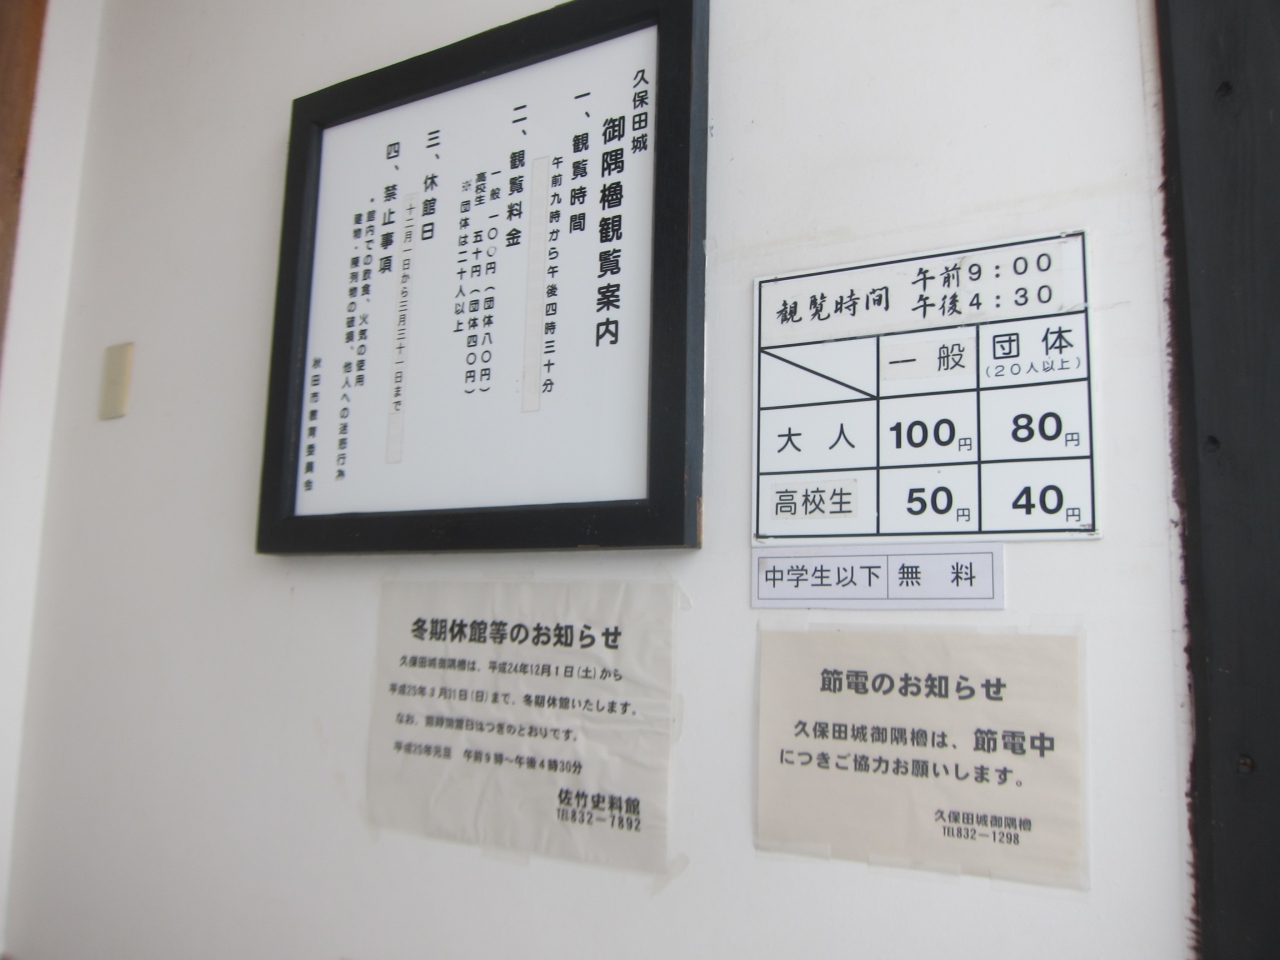 久保田城
御隅櫓観覧案内
一、観覧時間
午前九時から午後四時三十分
二、観覧料金
一般 一〇〇円(団体八〇円)
高校生 五十円(団体四〇円)
※団体は二十人以上
三、休館日
十二月一日から三月三十一日まで
四、禁止事項
・館内での飲食、火気の使用
建物・陳列物の破損、他人への迷惑行為
秋田市教育委員会
観覧時間 午前9:00
午後4:30
一般 団体
(20人以上)
大人 100円 80円
高校生 50円 40円
中学生以下 無料
冬期休館等のお知らせ
久保田城御隅櫓は、平成24年12月1日(土)から
平成25年3月31日(日)まで、冬期休館いたします。
なお、臨時開館日はつぎのとおりです。
平成25年元旦 午前9時~午後4時30分
佐竹史料館
TEL832-7892
節電のお知らせ
久保田城御隅櫓は、節電中
につきご協力お願いします。
久保田城御隅櫓
TEL832-1298